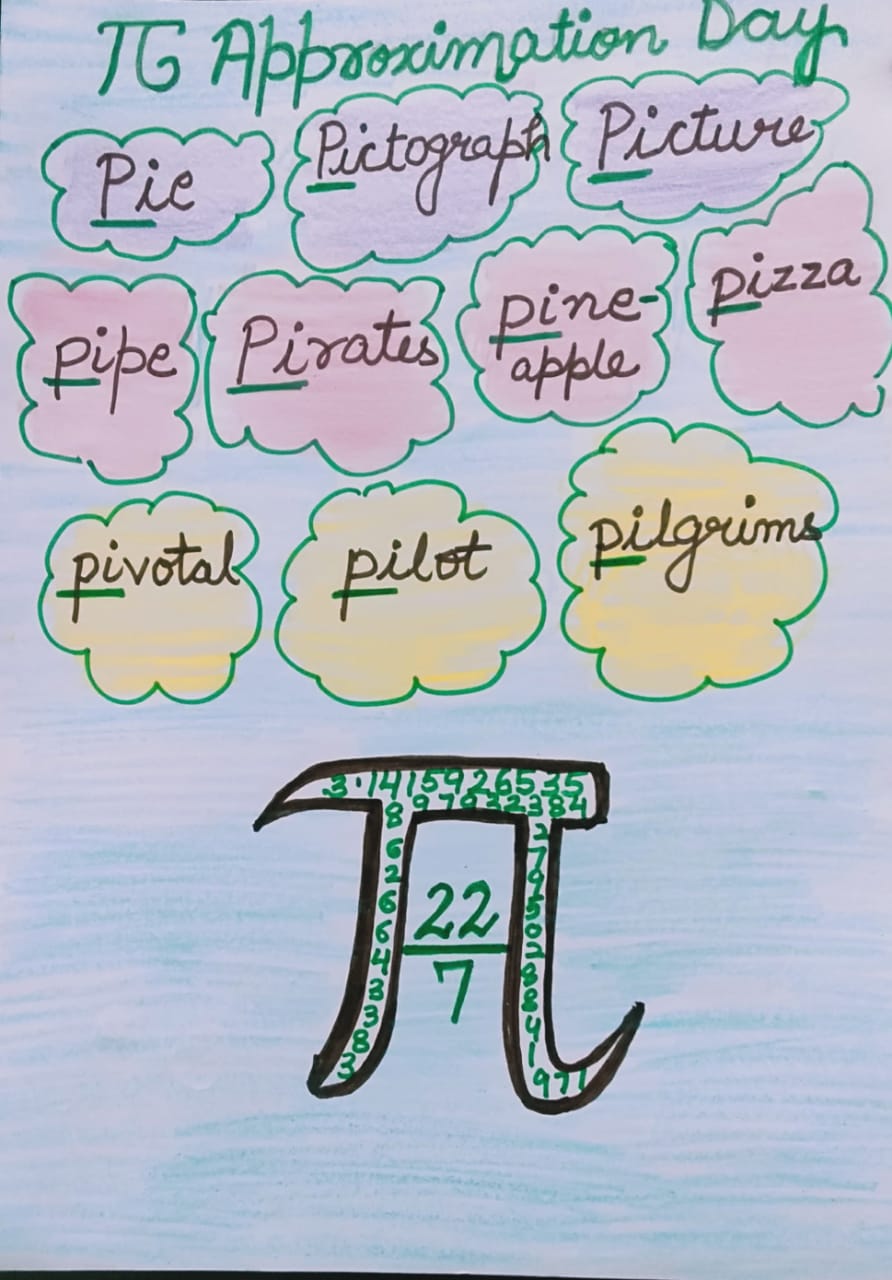 π Approximation Day
Pie
Pictograph
Picture
pipe
Pirates
pine-
apple
pizza
pivotal
pilot
pilgrims
3.1415926535
897932384
6
2
6
6
4
3
3
8
3
2
7
9
5
0
2
8
8
4
1
971
22
7